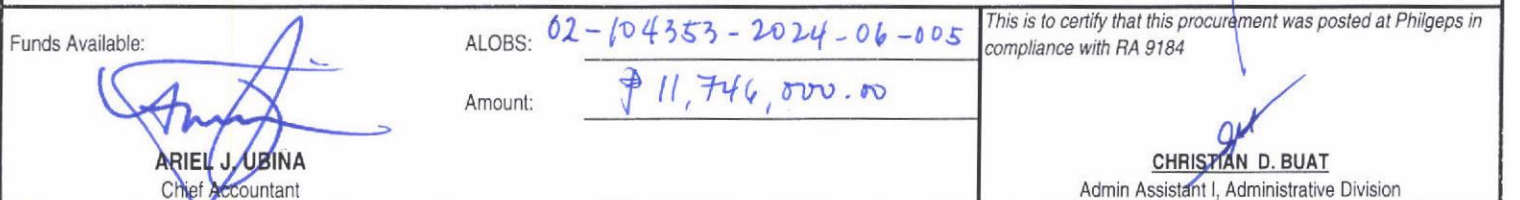 Funds Available:
ARIEL J. UBIÑA
Chief Accountant
ALOBS: 02-104353-2024-06-005
Amount: ₱ 11,746,000.00
This is to certify that this procurement was posted at Philgeps in
compliance with RA 9184
CHRISTIAN D. BUAT
Admin Assistant I, Administrative Division